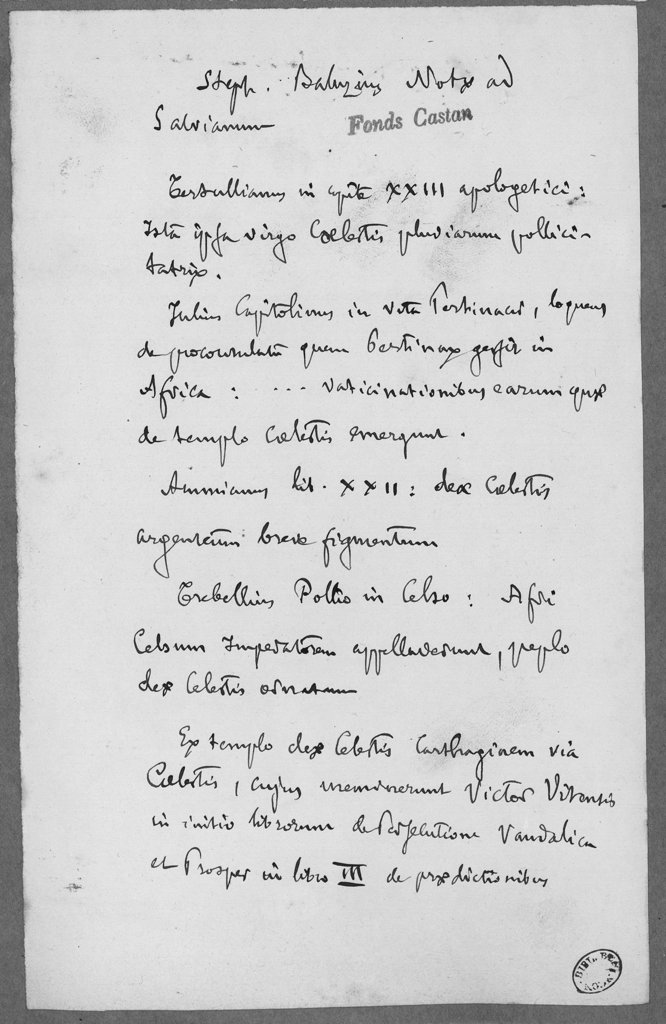 Steph. Baluzius Notæ ad
Salvianum
Fonds Castan
Tertullianus in capite XXIII apologetici :
Ista ipsa virgo Cœlestis pluviarum pollici-
tatrix.
Julius Capitolinus in vita Pertinacis, loquens
de proconsulatu quem Pertinax gessit in
Africa : ... vaticinationibus earum quæ
de templo Cœlestis emergunt.
Ammianus lib. XXII : deæ Cœlestis
argenteum breve figmentum
Trebellius Pollio in Celso : Afri
Celsum Imperatorem appellaverunt, peplo
deæ Celestis ornatum
Ex templo deæ Celestis Carthaginem via
Cœlestis, cujus meminerunt Victor Vitensis
in initio librorum de Persecutione Vandalica
et Prosper in libro III de prædictionibus
BIBL.